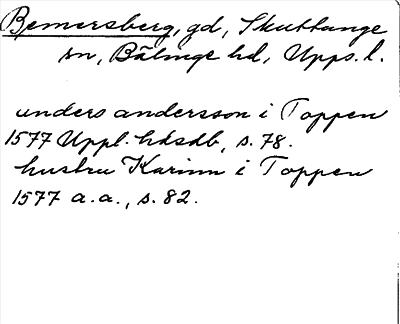 Bemersberg, gd, Skuttunge
sn, Bälinge hd, Upps. l.
unders andersson i Toppen
1577 Uppl. hdsdb, s. 78.
hustru Karinn i Toppen
1577 a.a., s. 82.